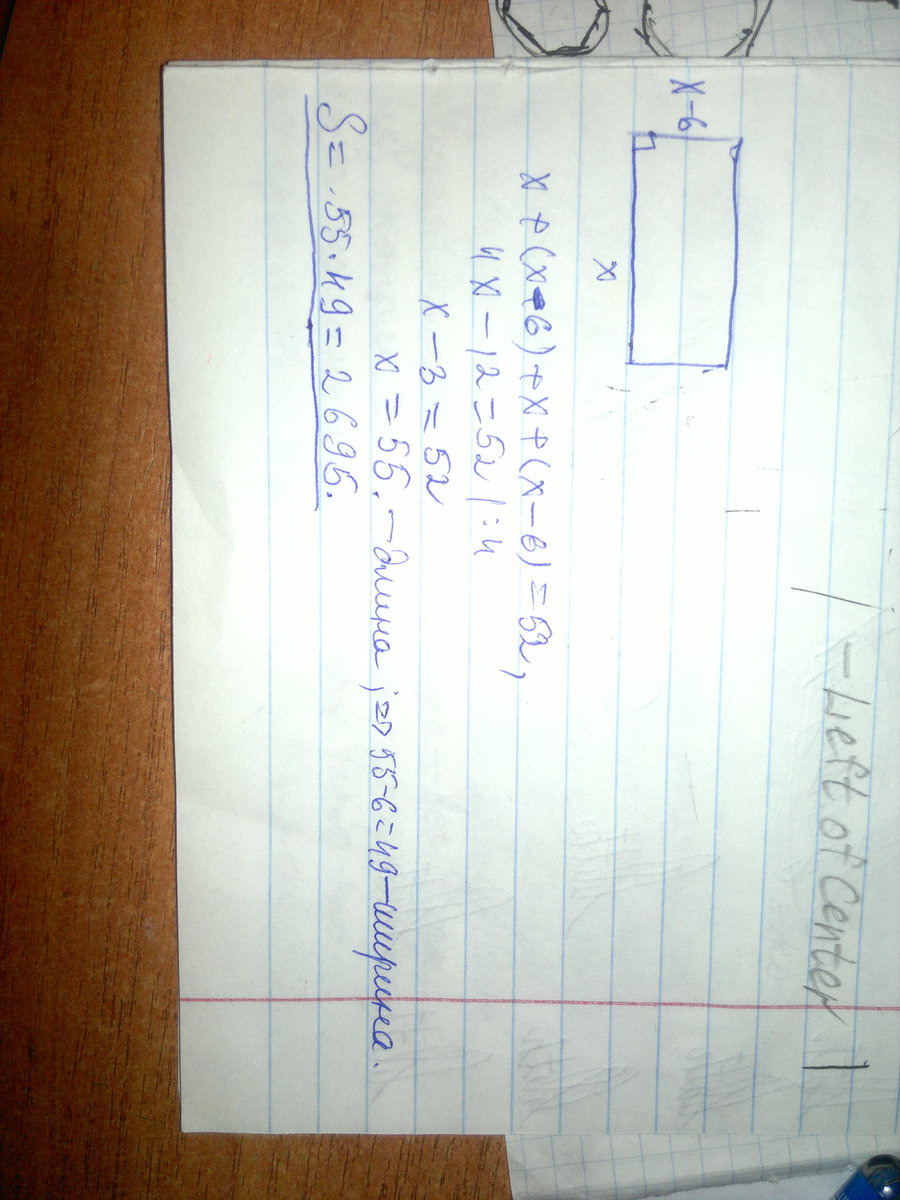 - Left of Center
x-6
x
x+(x-6)+x+(x-6)=52,
4x-12=52 |:4
x-3=52
x=55. - длина ; => 55-6=49-ширина.
S=.55·49=2695.